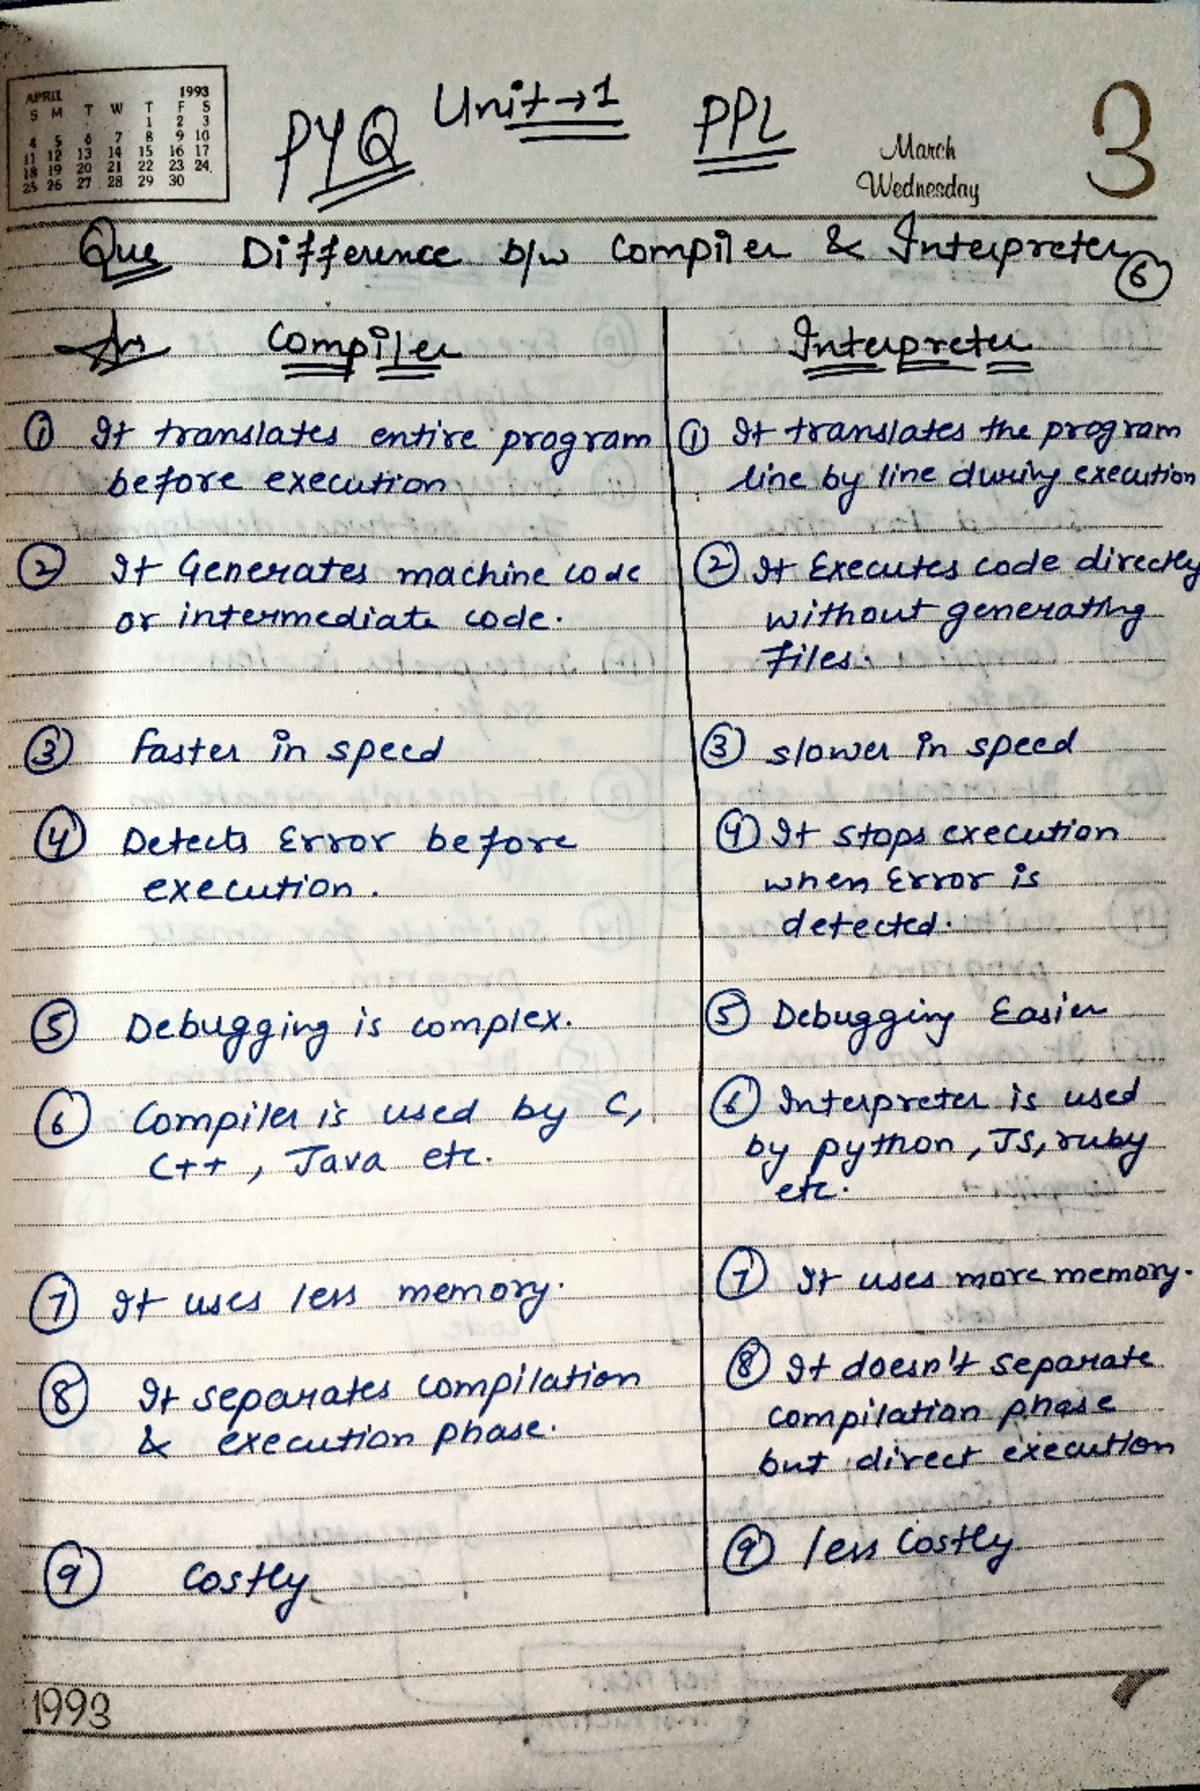 APRIL 1993
S M T W T F S
1 2 3
4 5 6 7 8 9 10
11 12 13 14 15 16 17
18 19 20 21 22 23 24
25 26 27 28 29 30
PYQ Unit→1 PPL
March
Wednesday
3
Que Difference b/w Compiler & Interpreter
6
Ans Compiler
Interpreter
① It translates entire program
before execution
① It translates the program
line by line during execution
② It Generates machine code
or intermediate code.
② It Executes code directly
without generating
files.
③ faster in speed
③ slower in speed
④ Detects Error before
execution.
④ It stops execution
when Error is
detected.
⑤ Debugging is complex.
⑤ Debugging Easier
⑥ Compiler is used by C,
C++, Java etc.
⑥ Interpreter is used
by python, JS, ruby
etc.
⑦ It uses less memory.
⑦ It uses more memory.
⑧ It separates compilation
& execution phase.
⑧ It doesn't separate
compilation phase
but direct execution
⑨ Costly
⑨ less Costly
1993